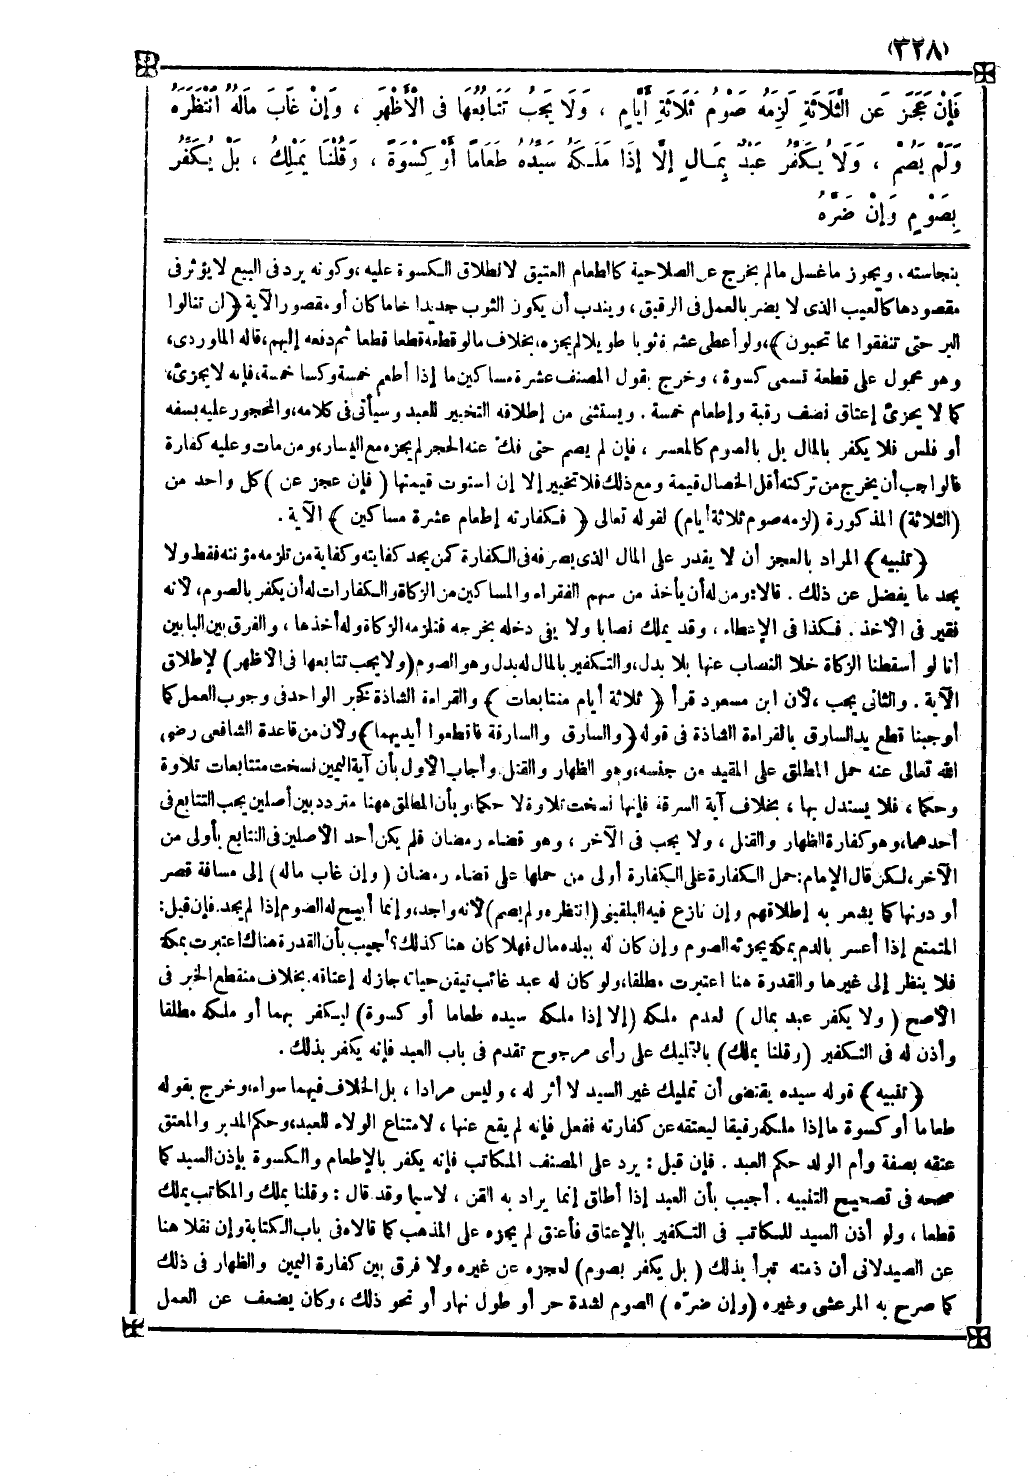 (٣٢٨)
فَإِنْ عَجَزَ عَنِ الثَّلَاثَةِ لَزِمَهُ صَوْمُ ثَلَاثَةِ أَيَّامٍ ، وَلَا يَجِبُ تَتَابُعُهَا فِى الْأَظْهَرِ ، وَإِنْ غَابَ مَالُهُ انْتَظَرَهُ
وَلَمْ يَصُمْ ، وَلَا يُكَفِّرُ عَبْدٌ بِمَالٍ إلَّا إذَا مَلَّكَهُ سَيِّدُهُ طَعَامًا أَوْ كِسْوَةً ، وَقُلْنَا يَمْلِكُ ، بَلْ يُكَفِّرُ
بِصَوْمٍ وَإِنْ ضَرَّهُ
بنجاسته ، ويجوز ما غسل مالم يخرج عن الصلاحية كالطعام العتيق لانطلاق الكسوة عليه ، وكونه يرد فى البيع لا يؤثر فى
مقصودها كالعيب الذى لا يضر بالعمل فى الرقيق ، ويندب أن يكون الثوب جديدا خاما كان أو مقصورا لآية ﴿ لن تنالوا
البر حتى تنفقوا مما تحبون ﴾ ، ولو أعطى عشرة ثوبا طويلا لم يجزه ، بخلاف مالو قطعه قطعا قطعا ثم دفعه إليهم ، قاله الماوردى ،
وهو محمول على قطعة تسمى كسوة ، وخرج بقول المصنف عشرة مساكين ما إذا أطعم خمسة وكسا خمسة ، فإنه لا يجزئ ،
كما لا يجزئ إعتاق نصف رقبة وإطعام خمسة . ويستثنى من إطلاقه التخيير للعبد وسيأتى فى كلامه ، والمحجور عليه بسفه
أو فلس فلا يكفر بالمال بل بالصوم كالمعسر ، فإن لم يصم حتى فك عنه الحجر لم يجزه مع اليسار ، ومن مات وعليه كفارة
فالواجب أن يخرج من تركته أقل الخصال قيمة ومع ذلك فلا تخيير إلا إن استوت قيمتها ( فإن عجز عن ) كل واحد من
(الثلاثة) المذكورة (لزمه صوم ثلاثة أيام) لقوله تعالى ﴿ فكفارته إطعام عشرة مساكين ﴾ الآية .
﴿ تنبيه ﴾ المراد بالعجز أن لا يقدر على المال الذى يصرفه فى الكفارة كمن يجد كفايته وكفاية من تلزمه مؤنته فقط ولا
يجد ما يفضل عن ذلك . قالا : ومن له أن يأخذ من سهم الفقراء والمساكين من الزكاة والكفارات له أن يكفر بالصوم ، لأنه
فقير فى الأخذ . فكذا فى الإعطاء ، وقد يملك نصابا ولا يفى دخله بخرجه فتلزمه الزكاة وله أخذها ، والفرق بين البابين
أنا لو أسقطنا الزكاة خلا النصاب عنها بلا بدل ، والتكفير بالمال له بدل وهو الصوم (ولا يجب تتابعها فى الأظهر) لإطلاق
الآية . والثانى يجب ، لأن ابن مسعود قرأ ﴿ ثلاثة أيام متتابعات ﴾ والقراءة الشاذة كخبر الواحد فى وجوب العمل كما
أوجبنا قطع يد السارق بالقراءة الشاذة فى قوله ﴿والسارق والسارقة فاقطعوا أيديهما﴾ ولأن من قاعدة الشافعى رضى
الله تعالى عنه حمل المطلق على المقيد من جنسه ، وهو الظهار والقتل وأجاب الأول بأن آية اليمين نسخت متتابعات تلاوة
وحكما ، فلا يستدل بها ، بخلاف آية السرقة فإنها نسخت تلاوة لا حكما ، وبأن المطلق ههنا متردد بين أصلين يجب التتابع فى
أحدهما ، وهو كفارة الظهار والقتل ، ولا يجب فى الآخر ، وهو قضاء رمضان فلم يكن أحد الأصلين فى التتابع بأولى من
الآخر ، لكن قال الإمام : حمل الكفارة على الكفارة أولى من حملها على قضاء رمضان (وإن غاب ماله) إلى مسافة قصر
أو دونها كما يشعر به إطلاقهم وإن نازع فيه البلقينى (انتظره ولم يصم) لأنه واجد ، وإنما أبيح له الصوم إذا لم يجد . فإن قيل :
المتمتع إذا أعسر بالدم بمكة يجزئه الصوم وإن كان له ببلده مال فهلا كان هنا كذلك ؟ أجيب بأن القدرة هناك اعتبرت بمكة
فلا ينظر إلى غيرها والقدرة هنا اعتبرت مطلقا ، ولو كان له عبد غائب تيقن حياته جاز له إعتاقه بخلاف منقطع الخبر فى
الأصح ( ولا يكفر عبد بمال ) لعدم ملكه (إلا إذا ملكه سيده طعاما أو كسوة) ليكفر بهما أو ملكه مطلقا
وأذن له فى التكفير (وقلنا يملك) بالتمليك على رأى مرجوح تقدم فى باب العبد فإنه يكفر بذلك .
﴿ تنبيه ﴾ قوله سيده يقتضى أن تمليك غير السيد لا أثر له ، وليس مرادا ، بل الخلاف فيهما سواء ، وخرج بقوله
طعاما أو كسوة ما إذا ملكه رقيقا ليعتقه عن كفارته ففعل فإنه لم يقع عنها ، لامتناع الولاء للعبد ، وحكم المدبر والمعتق
عتقه بصفة وأم الولد حكم العبد . فإن قيل : يرد على المصنف المكاتب فإنه يكفر بالإطعام والكسوة بإذن السيد كما
صححه فى تصحيح التنبيه . أجيب بأن العبد إذا أطلق إنما يراد به القن ، لا سيما وقد قال : وقلنا يملك والمكاتب يملك
قطعا ، ولو أذن السيد للمكاتب فى التكفير بالإعتاق فأعتق لم يجزه على المذهب كما قالاه فى باب الكتابة وإن نقلا هنا
عن الصيدلانى أن ذمته تبرأ بذلك ( بل يكفر بصوم) لعجزه عن غيره ولا فرق بين كفارة اليمين والظهار فى ذلك
كما صرح به المرعشى وغيره (وإن ضره ) الصوم لشدة حر أو طول نهار أو نحو ذلك ، وكان يضعف عن العمل